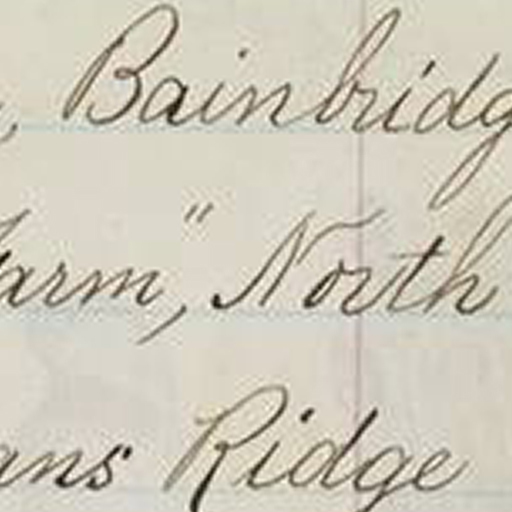 , Bainbridg
arm," North
ans Ridge